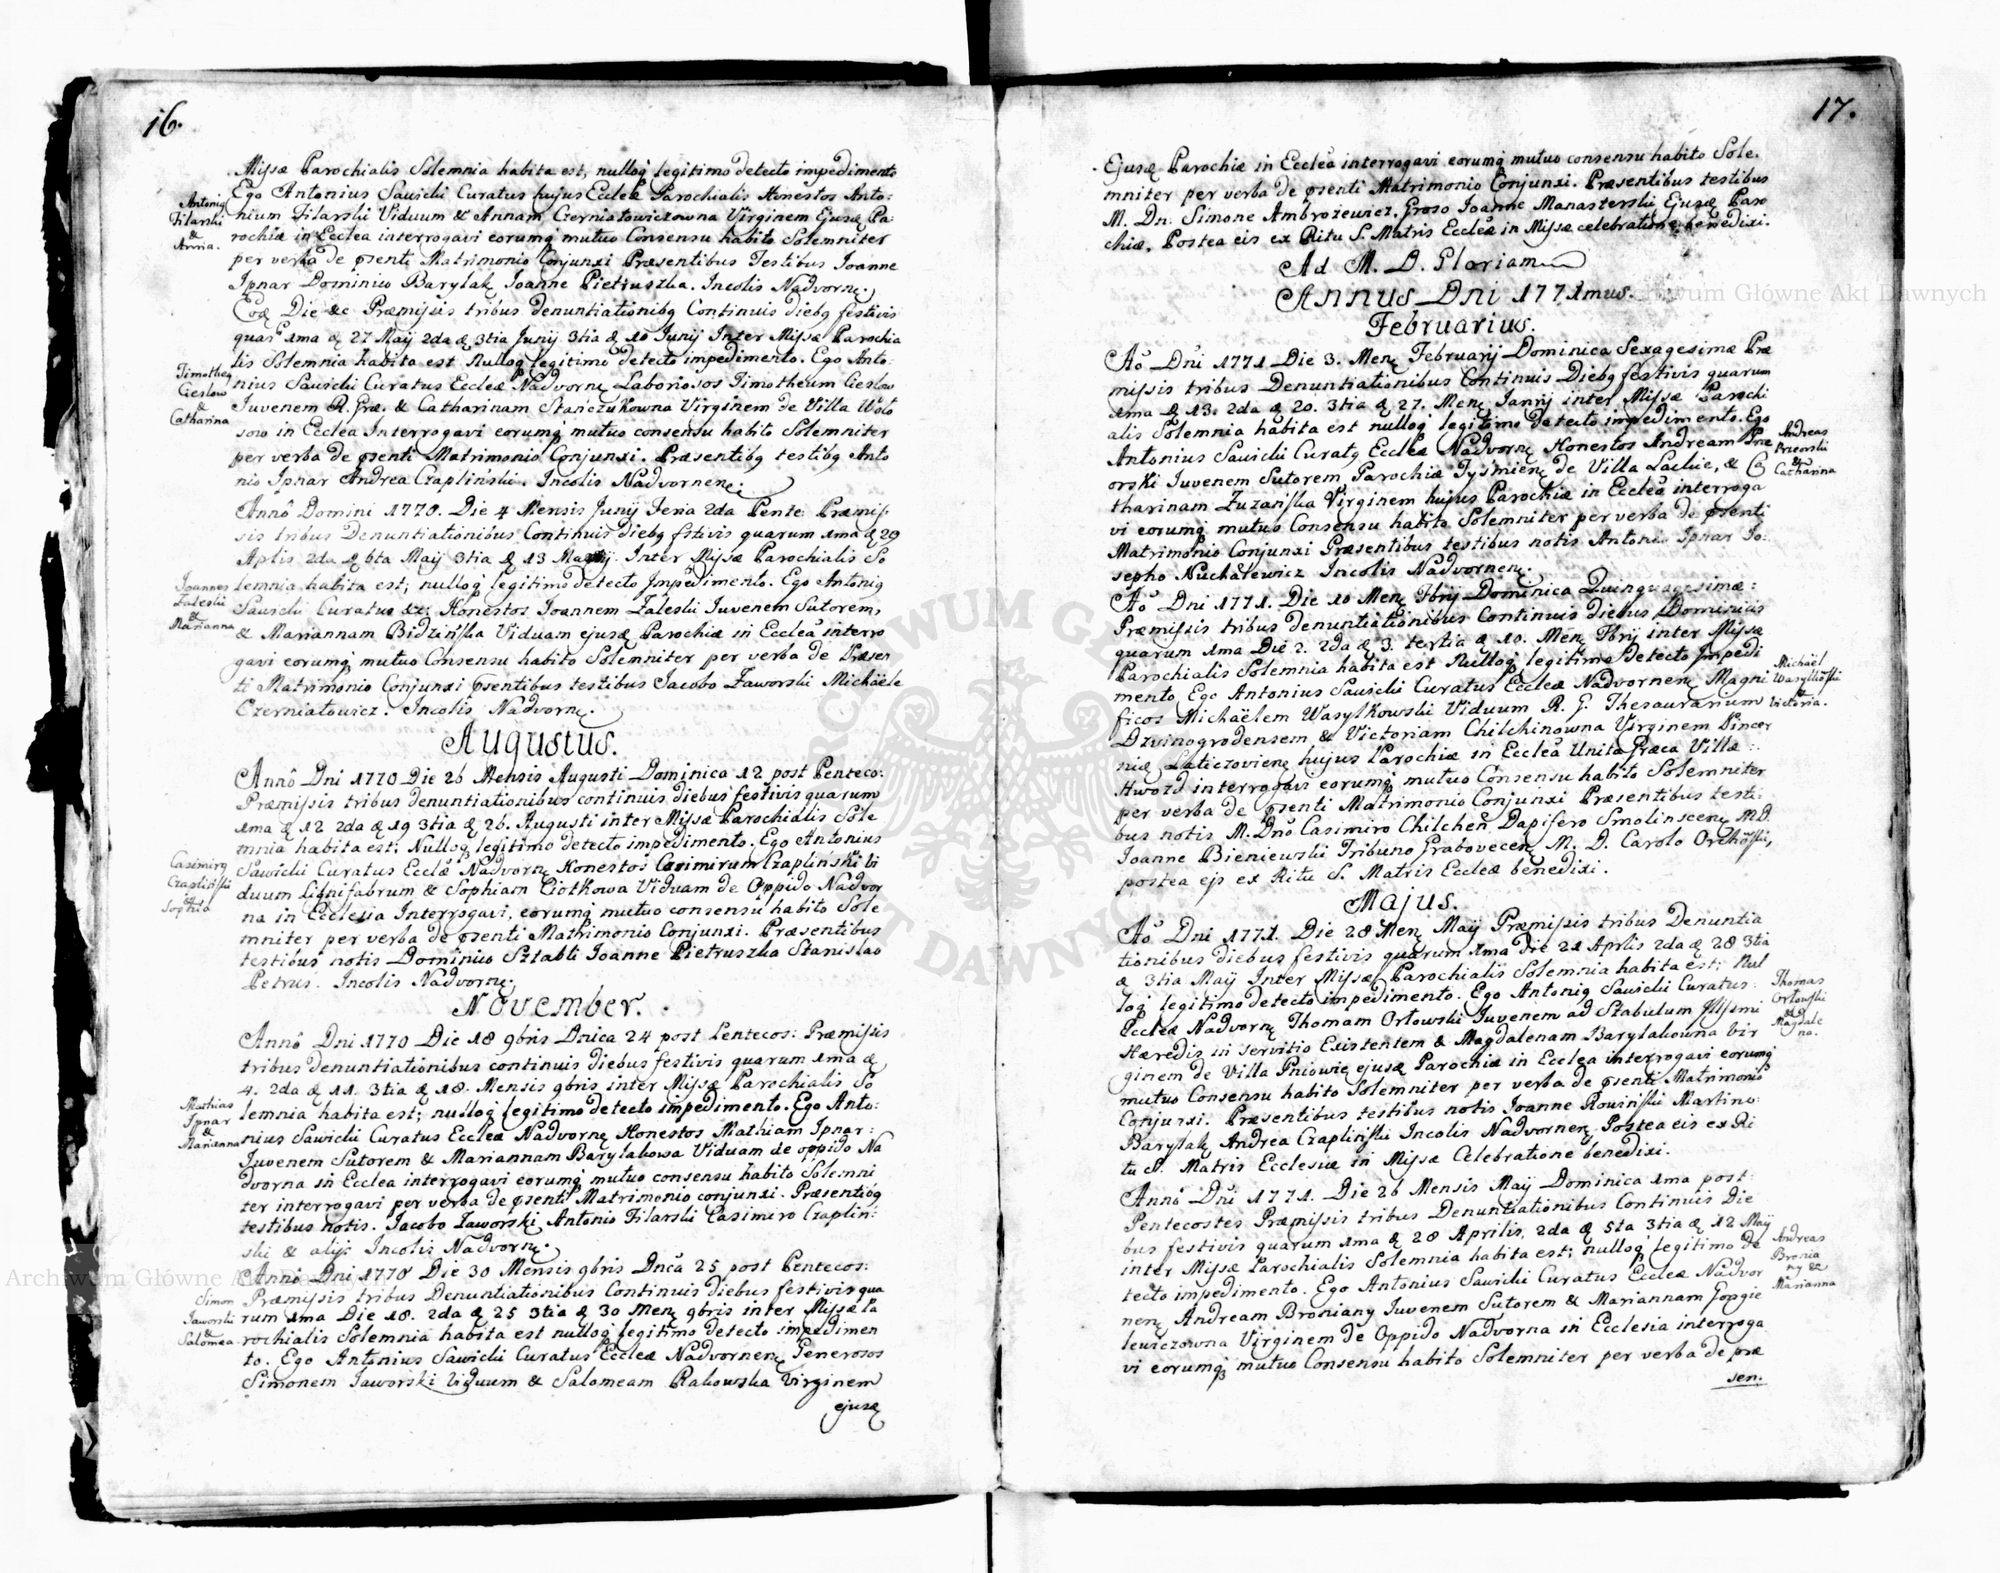 16.
Missæ Parochialis Solemnia habita est, nulloq legitimo detecto impedimento
Ego Antonius Sawicki Curatus hujus Eccleæ Parochialis Honestos Anto:
nium Filarski Viduum & Annam Czerniatowiczowna Virginem Ejusq Pa
rochiæ in Ecclea interrogavi eorumq mutuo Consensu habito Solemniter
per verba de psenti Matrimonio Conjunxi Præsentibus Testibus Joanne
Ipnar Dominico Barylak Joanne Pietruszka. Incolis Nadvorn.
Antonig
Filarski
&
Anna.
Eoq Die &c Præmissis tribus denuntiationibq Continuis diebq festivis
quar 1ma q 27 Maij 2da q 3tia Junij 3tia q 10 Junij Inter Missæ Parochia
lis Solemnia habita est Nulloq legitimo detecto impedimento. Ego Anto:
nius Sawicki Curatus Eccleæ Nadvorn Laboriosos Timotheum Cieslow
Juvenem R. Græ. & Catharinam Stańczukowna Virginem de Villa Woło
sow in Ecclea Interrogavi eorumq mutuo consensu habito Solemniter
per verba de psenti Matrimonio Conjunxi. Præsentibq testibq Anto
nio Ipnar Andrea Czapliński. Incolis Nadvornen:
Timotheq
Cieslow
&
Catharina
Annô Domini 1770. Die 4 Mensis Junij Feria 2da Pente: Præmis
sis tribus Denuntiationibus Continuis diebq fstivis quarum 1ma q 29
Aplis 2da q 6ta Maij 3tia q 13 Maij. Inter Missæ Parochialis So
lemnia habita est; nulloq legitimo detecto Impedimento. Ego Antonig
Sawicki Curatus &c: Honestos Joannem Zaleski Juvenem Sutorem,
& Mariannam Bidzińska Viduam ejusq Parochiæ in Eccleâ interro
gavi eorumq mutuo Consensu habito Solemniter per verba de Præsen
ti Matrimonio Conjunxi psentibus testibus Jacobo Jaworski Michäele
Czerniatowicz. Incolis Nadvorn.
Joannes
Zaleski
&
Marianna
Augustus.
Annô Dni 1770 Die 26 Mensis Augusti Dominica 12 post Penteco:
Præmissis tribus denuntiationibus continuis diebus festivis quarum
1ma q 12 2da q 19 3tia q 26. Augusti inter Missæ Parochialis Sole
mnia habita est: Nulloq legitimo detecto impedimento. Ego Antonius
Sawicki Curatus Eccleæ Nadvorn Honestos Casimirum Czapliński Vi
duum Lignifabrum & Sophiam Ciotkowa Viduam de Oppido Nadvor
na in Ecclesia Interrogavi, eorumq mutuo consensu habito Sole
mniter per verba de psenti Matrimonio Conjunxi. Præsentibus
testibus notis Dominico Sztabli Joanne Pietruszka Stanislao
Petrus. Incolis Nadvorn.
Casimirq
Czapliński
&
Sophia
November.
Annô Dni 1770 Die 18 9bris Dnica 24 post Pentecos: Præmissis
tribus denuntiationibus continuis diebus festivis quarum 1ma q
4. 2da q 11. 3tia q 18. Mensis 9bris inter Missæ Parochialis So
lemnia habita est; nulloq legitimo detecto impedimento. Ego Anto:
nius Sawicki Curatus Eccleæ Nadvorn Honestos Mathiam Ipnar:
Juvenem Sutorem & Mariannam Barylakowa Viduam de oppido Na
dvorna in Ecclea interrogavi eorumq mutuo consensu habito Solemni
ter interrogavi per verba de psenti Matrimonio conjunxi. Præsentibq
testibus notis. Jacobo Jaworski, Antonio Filarski Casimiro Czapliń:
ski & alijs Incolis Nadvorn.
Mathias
Ipnar
&
Marianna
Annô Dni 1770 Die 30 Mensis 9bris Dnca 25 post Pentecos:
Præmissis tribus Denuntiationibus Continuis diebus festivis qua
rum 1ma Die 18. 2da q 25 3tia q 30 Men 9bris inter Missæ Pa
rochialis Solemnia habita est nulloq legitimo detecto impedimen
to. Ego Antonius Sawicki Curatus Eccleæ Nadvornen Generosos
Simonem Jaworski Viduum & Salomeam Rakowska Virginem
ejusq
Simon
Jaworski
&
Salomea.
17.
Ejusq Parochiæ in Eccleâ interrogavi eorumq mutuo consensu habito Sole.
mniter per verba de psenti Matrimonio Conjunxi. Præsentibus testibus
M. Dn. Simone Ambrożewicz. Groso Joanne Manasterski Ejusq Paro
chiæ. Postea eis ex Ritu S. Matris Eccleæ in Missæ celebratione benedixi.
Ad M. D. Gloriam
Annus Dni 1771mus.
Februarius.
Aô Dni 1771 Die 3. Men Februarij Dominica Sexagesimæ Præ
missis tribus Denuntiationibus Continuis Diebq festivis quarum
1ma q 13. 2da q 20. 3tia q 27. Men Janrij inter Missæ Parochi
alis Solemnia habita est nulloq legitimo detecto impedimento. Ego
Antonius Sawicki Curatq Eccleæ Nadvorn Honestos Andream Prze
orski Juvenem Sutorem Parochiæ Tyśmien de Villa Lackie, & Ca
tharinam Zuzańska Virginem hujus Parochiæ in Eccleâ interroga
vi eorumq mutuo Consensu habito Solemniter per verba de psenti
Matrimonio Conjunxi Præsentibus testibus notis Antonio Ipnar Jo:
sepho Nuchalewicz Incolis Nadvornen.
Andreas
Przeorski
&
Catharina
Aô Dni 1771. Die 10 Men Fbrij Dominica Quinquagesimæ:
Præmissis tribus denuntiationibus Continuis diebus Dominicis
quarum 1ma Die 2. 2da q 3. tertia q 10. Men Fbrij inter Missæ
Parochialis Solemnia habita est Nulloq legitimo detecto Impedi
mento Ego Antonius Sawicki Curatus Eccleæ Nadvornen Magni
ficos Michäelem Wasylkowski Viduum R. G. Thesaurarium
Dzvinogrodensem & Victoriam Chilchinowna Virginem Pincer
niæ Laticzovien hujus Parochiæ in Eccleâ Unita Græca Villæ:
Hwozd interrogavi eorumq mutuo Consensu habito Solemniter
per verba de psenti Matrimonio Conjunxi Præsentibus testi:
bus notis M. Dno Casimiro Chilchen Dapifero Smolinscen M.D.
Joanne Bieniewski Tribuno Grabovecen M. D. Carolo Orchoski,
postea ejs ex Ritu S. Matris Eccleæ benedixi.
Michäel
Wasylkoski
&
Victoria.
Majus.
Aô Dni 1771. Die 28 Men Maij Præmissis tribus Denuntia
tionibus diebus festivis quarum 1ma die 21 Aprlis 2da q 28 3tia
q 3tia Maij Inter Missæ Parochialis Solemnia habita est; Nul
loq legitimo detecto impedimento. Ego Antonig Sawicki Curatus:
Eccleæ Nadvorn Thomam Orłowski Juvenem ad Stabulum Illssmi
Hæredis in servitio Existentem & Magdalenam Barylakowna Vir
ginem de Villa Pniowie ejusq Parochiæ in Ecclea interrogavi eorumq
mutuo Consensu habito Solemniter per verba de psenti Matrimonio
Conjunxi. Præsentibus testibus notis Joanne Rowiński Martino:
Barylak Andrea Czapliński Incolis Nadvornen Postea eis ex Ri
tu S. Matris Ecclesiæ in Missæ Celebratione benedixi.
Thomas
Orłowski
&
Magdale
na.
Annô Dni 1771. Die 26 Mensis Maij Dominica 1ma post:
Pentecostes Præmissis tribus Denuntiationibus Continuis Die
bus festivis quarum 1ma q 28 Aprilis, 2da q 5ta 3tia q 12 Maij
inter Missæ Parochialis Solemnia habita est; nulloq legitimo de
tecto impedimento. Ego Antonius Sawicki Curatus Eccleæ Nadvor
nen Andream Broniany Juvenem Sutorem & Mariannam Jopgie
lewiczowna Virginem de Oppido Nadvorna in Ecclesia interroga
vi eorumq mutuo Consensu habito Solemniter per verba de præ
sen.
Andreas
Bronia
ny &
Marianna
Archiwum Główne Akt Dawnych
Archiwum Główne Akt Dawnych
ARCHIWUM GŁÓWNE AKT DAWNYCH